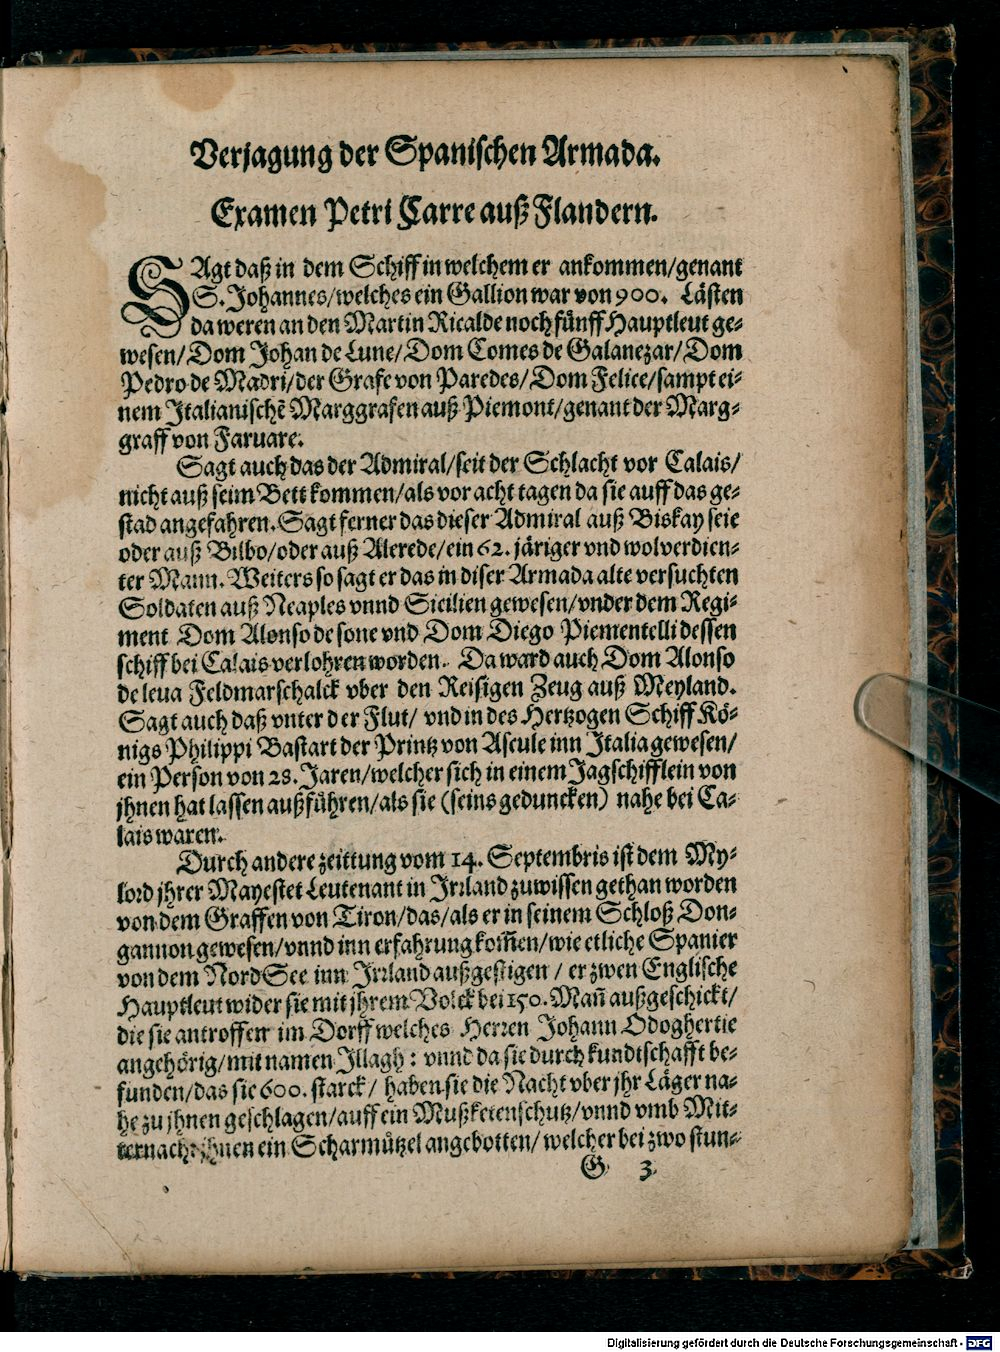 Verjagung der Spanischen Armada.
Examen Petri Carre auß Flandern.
SAgt daß in dem Schiff in welchem er ankommen/genant
S. Johannes/welches ein Gallion war von 900. Lästen
da weren an den Martin Ricalde noch fünff Hauptleut ge-
wesen/Dom Johan de Lune/Dom Comes de Galanezar/Dom
Pedro de Madri/der Grafe von Paredes/Dom Felice/sampt ei-
nem Italianischē Marggrafen auß Piemont/genant der Marg-
graff von Faruare.
Sagt auch das der Admiral/seit der Schlacht vor Calais/
nicht auß seim Bett kommen/als vor acht tagen da sie auff das ge-
stad angefahren. Sagt ferner das dieser Admiral auß Biskay seie
oder auß Bilbo/oder auß Alerede/ein 62. järiger vnd wolverdien-
ter Mann. Weiters so sagt er das in diser Armada alte versuchten
Soldaten auß Neaples vnnd Sicilien gewesen/vnder dem Regi-
ment Dom Alonso de sone vnd Dom Diego Piementelli dessen
schiff bei Calais verlohren worden. Da ward auch Dom Alonso
de leua Feldmarschalck vber den Reisigen Zeug auß Meyland.
Sagt auch daß vnter der Flut/ vnd in des Hertzogen Schiff Kö-
nigs Philippi Bastart der Printz von Ascule inn Italia gewesen/
ein Person von 28. Jaren/welcher sich in einem Jagschifflein von
jhnen hat lassen außführen/als sie (seins geduncken) nahe bei Ca-
lais waren.
Durch andere zeittung vom 14. Septembris ist dem My-
lord jhrer Mayestet Leutenant in Irrland zuwissen gethan worden
von dem Graffen von Tiron/das/als er in seinem Schloß Don-
gannon gewesen/vnnd inn erfahrung kom̃en/wie etliche Spanier
von dem Nord See inn Irrland außgestigen / er zwen Englische
Hauptleut wider sie mit jhrem Volck bei 150. Man̄ außgeschickt/
die sie antroffen im Dorff welches Herren Johann Odoghertie
angehörig/mit namen Illagh: vnnd da sie durch kundtschafft be-
funden/das sie 600. starck/ haben sie die Nacht vber jhr Läger na-
he zu jhnen geschlagen/auff ein Mußketenschutz/vnnd vmb Mit-
ternacht jhnen ein Scharmützel angebotten/welcher bei zwo stun-
G 3
Digitalisierung gefördert durch die Deutsche Forschungsgemeinschaft - DFG